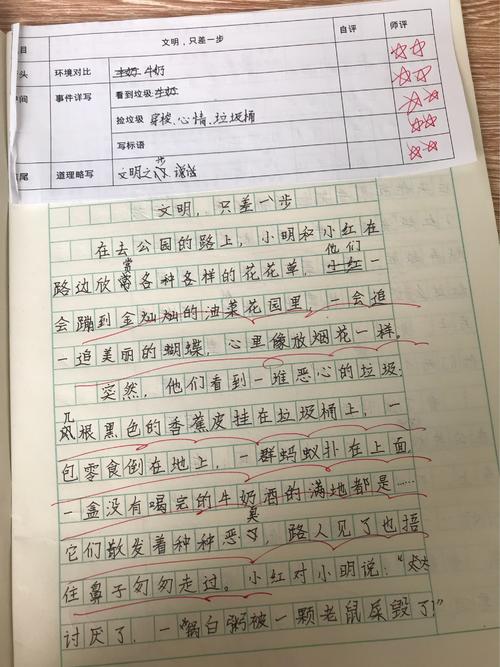 目 文明,只差一步 自评 师评
头 环境对比 牛奶
中间 事件详写 看到垃圾:牛奶
捡垃圾 穿梭、心情、垃圾桶
写标语
尾 道理略写 文明之 步 说话
文明,只差一步
在去公园的路上,小明和小红在
路边欣赏各种各样的花花草,他们一
会蹦到金灿灿的油菜花园里,一会追
一追美丽的蝴蝶,心里像放烟花一样。
突然,他们看到一堆恶心的垃圾:
几根黑色的香蕉皮挂在垃圾桶上,一
包零食倒在地上,一群蚂蚁扑在上面,
一盒没有喝完的牛奶洒的满地都是……
它们散发着种种恶臭,路人见了也捂
住鼻子匆匆走过。小红对小明说:“太
讨厌了,一“锅白粥被一颗老鼠屎毁了”